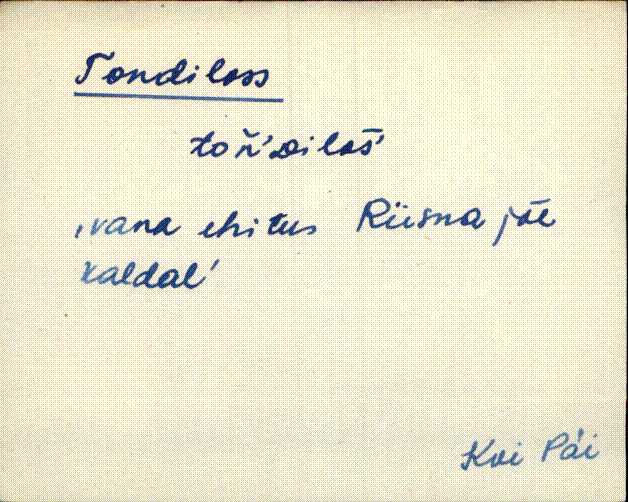 Tondiloss
toǹ'diloš'
‚vana ehitus Riisna jõe
kaldal'
Koi Päi